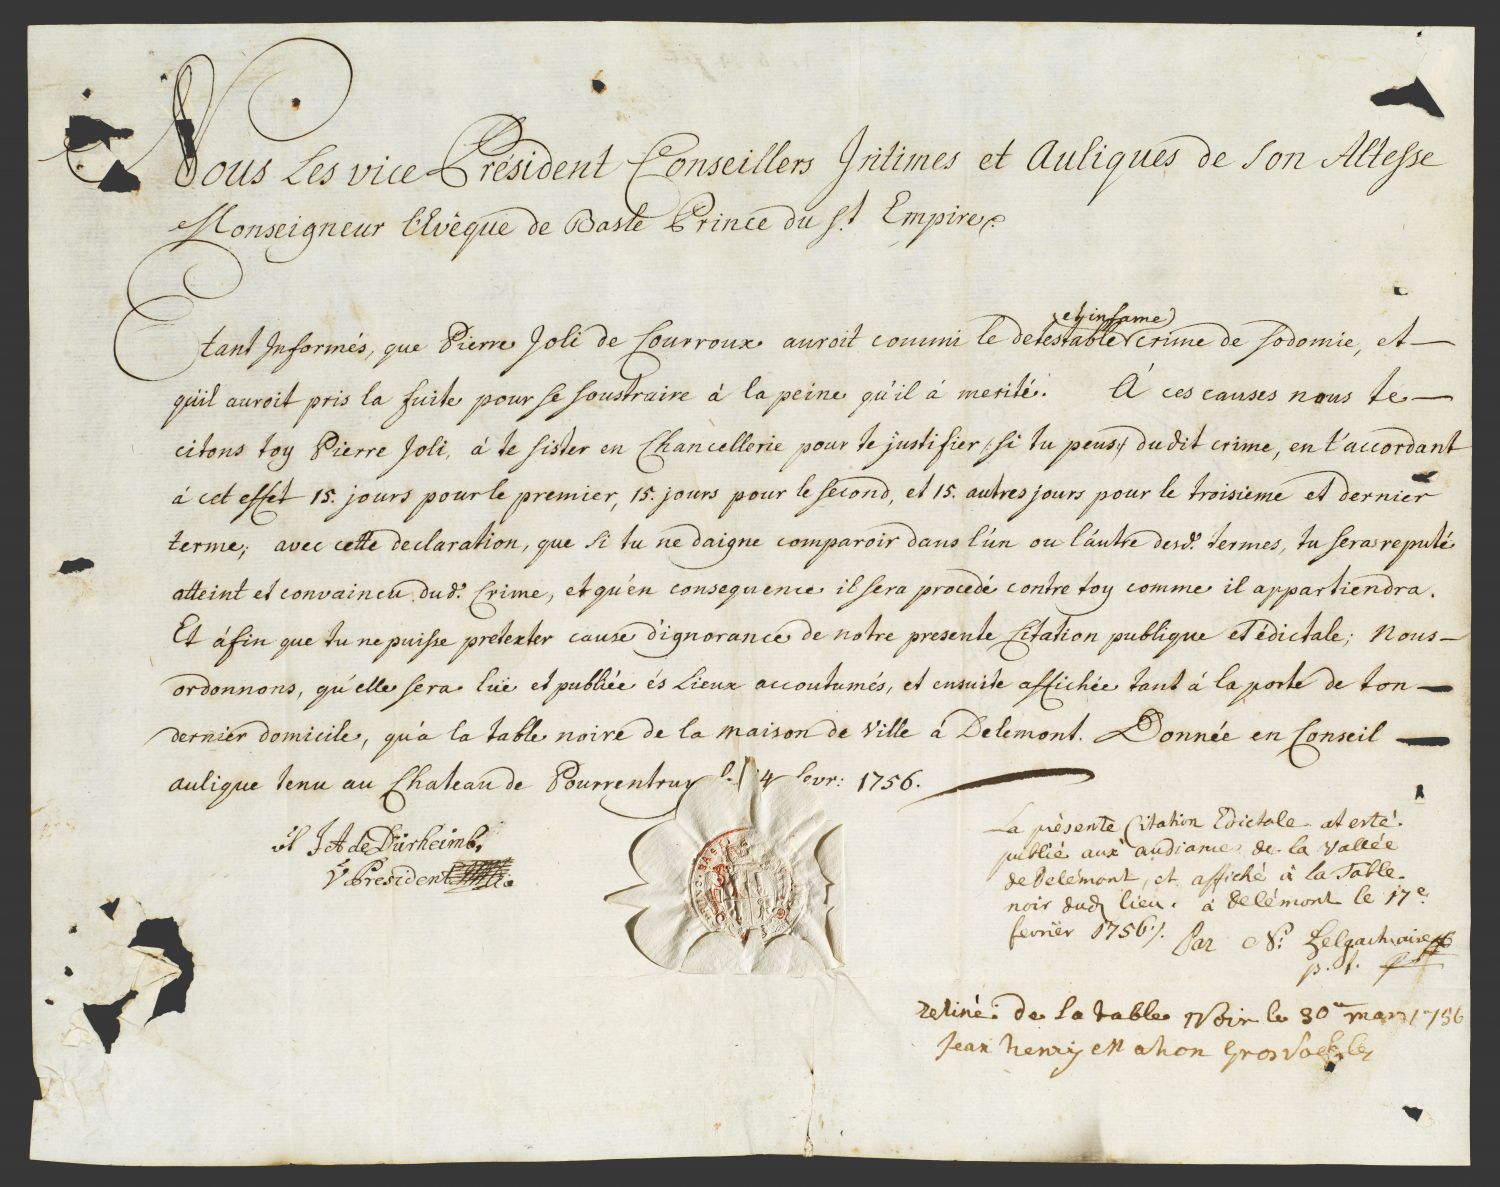 Nous Les vice Président Conseillers Intimes et Auliques de Son Altesse
Monseigneur l'Evêque de Basle Prince du St. Empire.
et infame
Etant Informés, que Pierre Joli de Courroux auroit commi le detestable crime de Sodomie, et
qu'il auroit pris la fuite pour se soustraire à la peine qu'il á merité. A ces causes nous te
citons toy Pierre Joli, á te sister en Chancellerie pour te justifier, si tu peus, dudit crime, en t'accordant
á cet effet 15. jours pour le premier, 15. jours pour le second, et 15. autres jours pour le troisieme et dernier
terme; avec cette declaration, que si tu ne daigne comparoir dans l'un ou l'autre desd. termes, tu seras reputé
atteint et convaincu dud. Crime, et qu'en consequence il sera procedé contre toy comme il appartiendra.
Et áfin que tu ne puisse pretexter cause d'ignorance de notre presente Citation publique et édictale; Nous
ordonnons, qu'elle sera lüe et publiée és Lieux accoutumés, et ensuite affichée tant á la porte de ton
dernier domicile, qu'a la table noire de la maison de Ville á Delemont. Donnée en Conseil
aulique tenu au Chateau de Pourrentruy 4 fevr: 1756.
J A de Dürheimb,
V. President
La présente Citation Edictale at esté
publié aux audiance de la Vallée
de Delémont, et affiché á la Table
noir dud. lieu. á Delémont le 17e
fevriër 1756.
Par N.
p. t.
retiré de la table Noir le 30 mars 1756
Jean henry